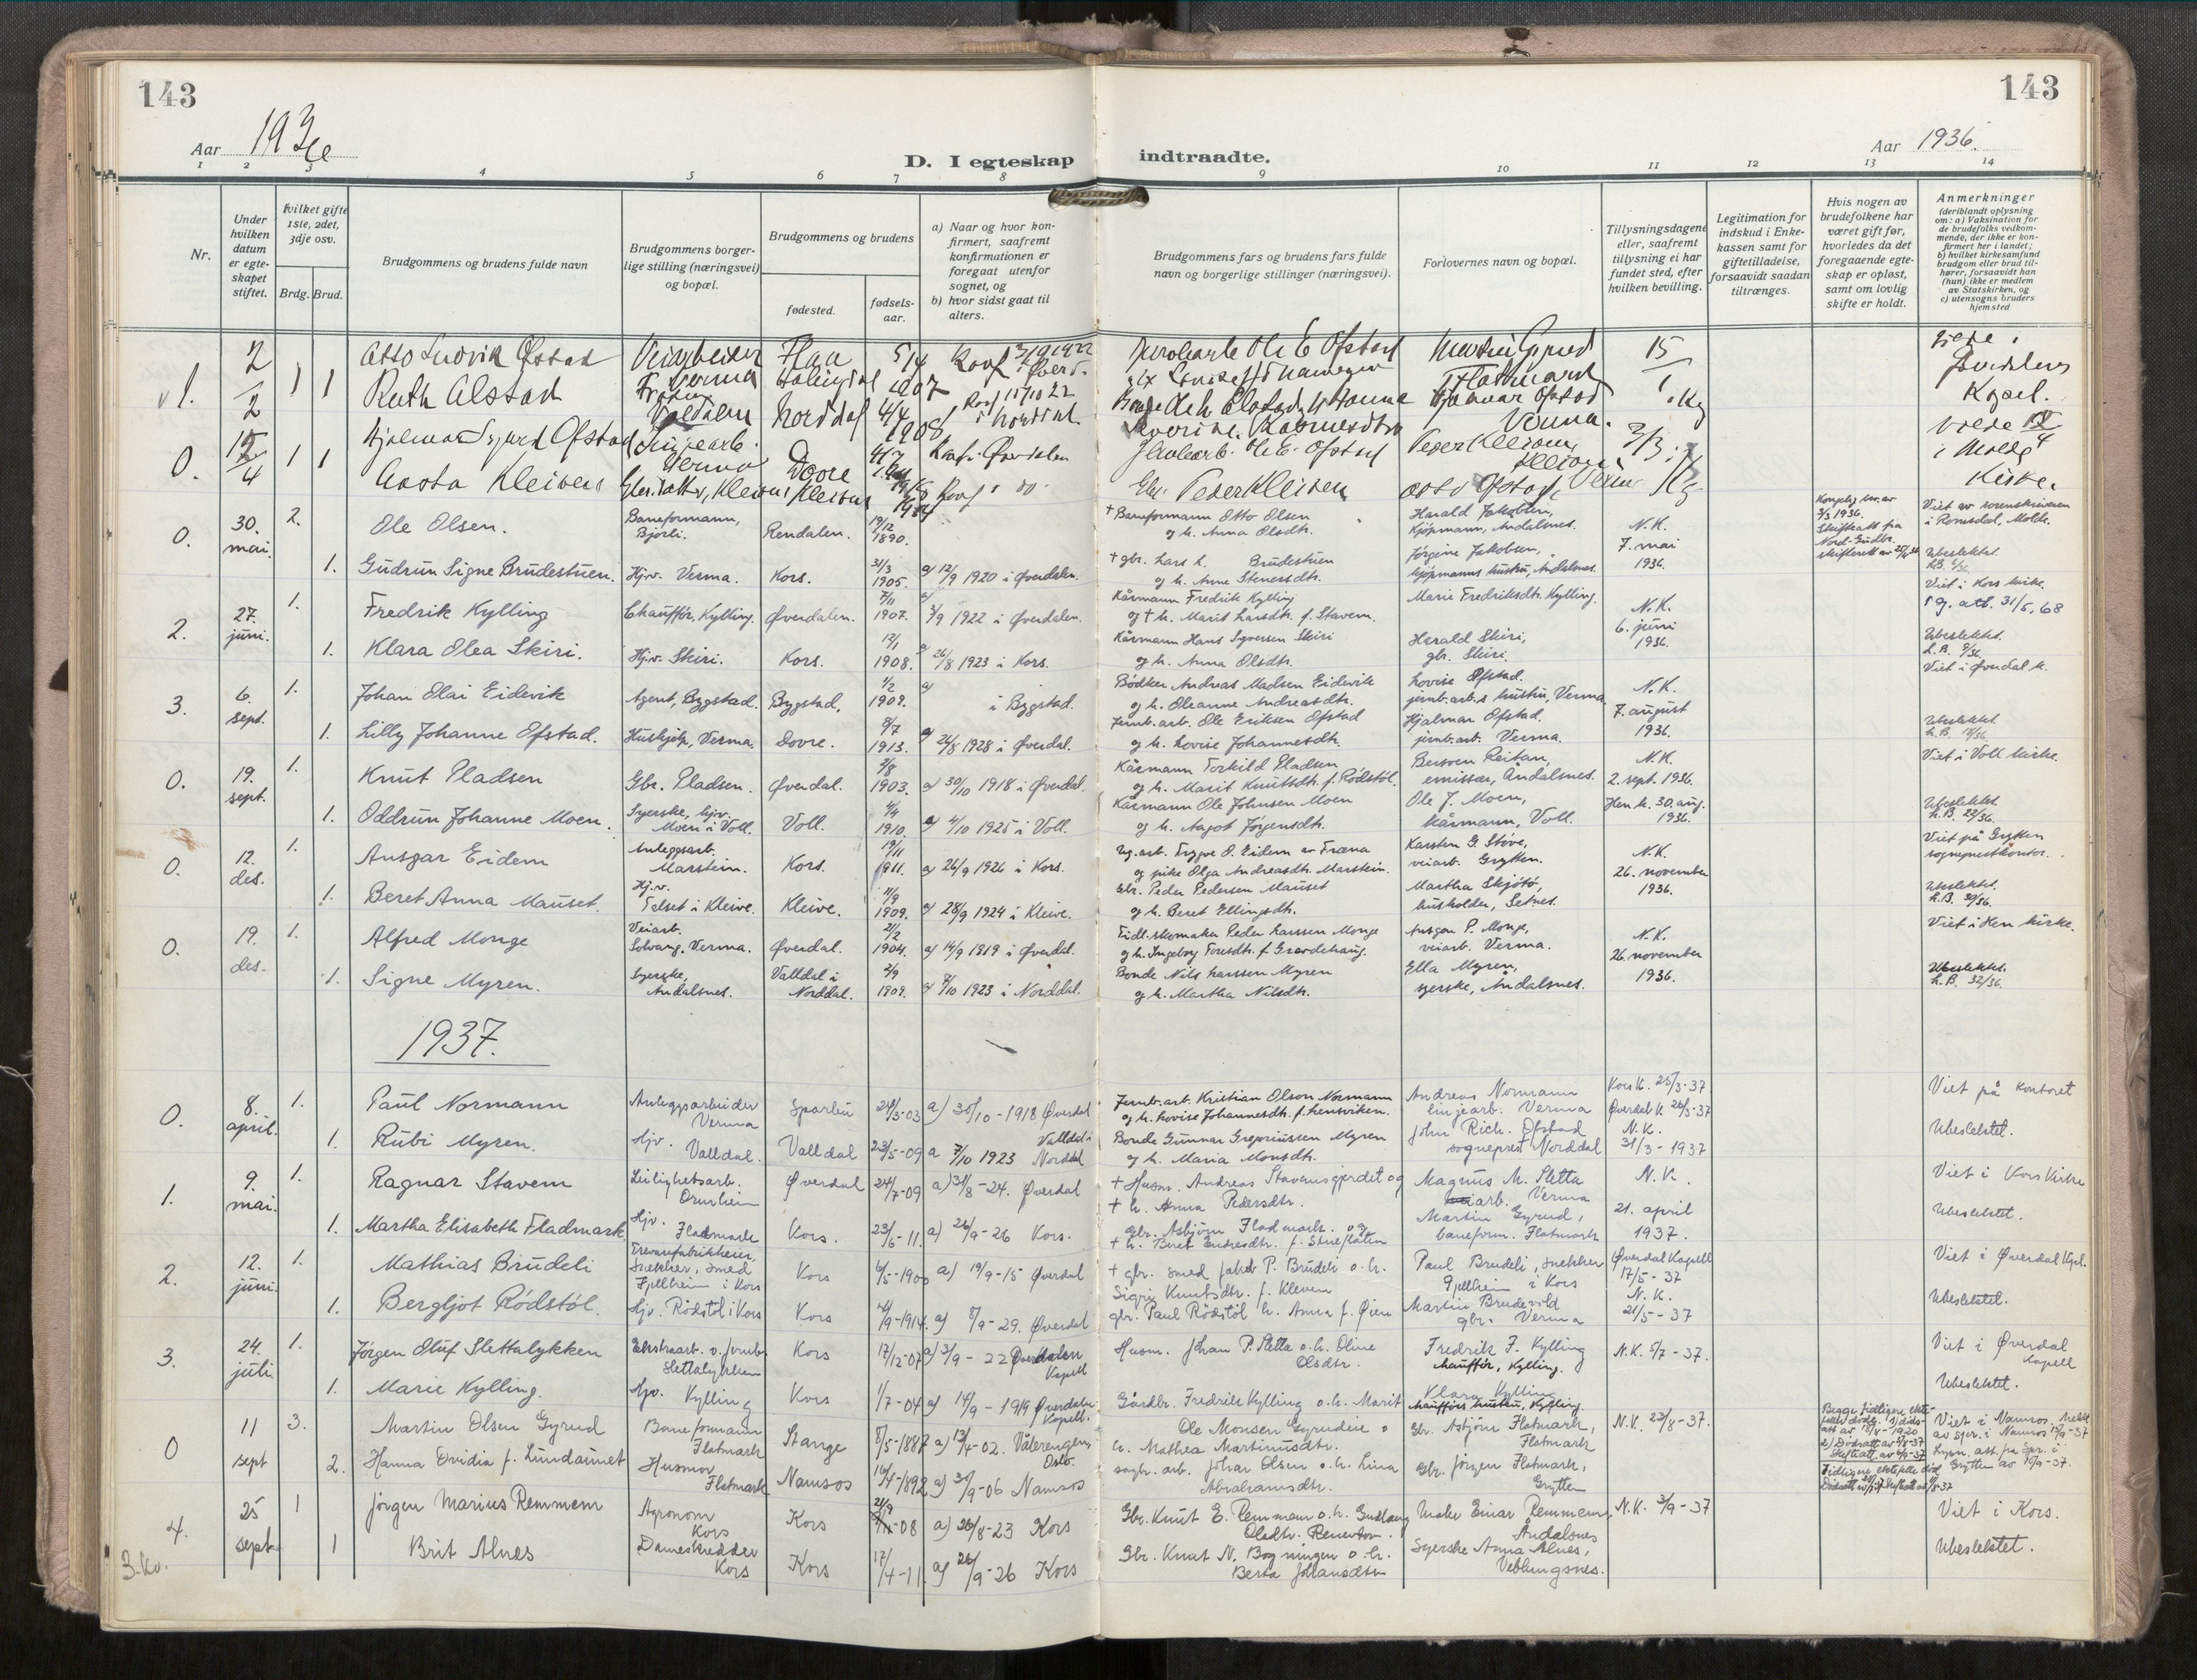 143
143
Aar 1936
D. I egteskap indtraadte.
Aar 1936.
1 2 3 4 5 6 7 8 9 10 11 12 13 14
Nr.
Under hvilken datum er egteskapet stiftet.
Hvilket gifte 1ste, 2det, 3dje osv.
Brdg. Brud.
Brudgommens og brudens fulde navn
Brudgommens borgerlige stilling (næringsvei) og bopæl.
Brudgommens og brudens
fødested.
fødselsaar.
a) Naar og hvor konfirmert, saafremt konfirmationen er foregaat utenfor sognet, og
b) hvor sidst gaat til alters.
Brudgommens fars og brudens fars fulde navn og borgerlige stillinger (næringsvei).
Forlovernes navn og bopæl.
Tillysningsdagene eller, saafremt tillysning ei har fundet sted, efter hvilken bevilling.
Legitimation for indskud i Enkekassen samt for giftetilladelse, forsaavidt saadan tiltrænges.
Hvis nogen av brudefolkene har været gift før, hvorledes da det foregaaende egteskap er opløst, samt om lovlig skifte er holdt.
Anmerkninger
(deriblandt oplysning om: a) Vaksination for de brudefolks vedkommende, der ikke er konfirmert her i landet; b) hvilket kirkesamfund brudgom eller brud tilhører, forsaavidt han (hun) ikke er medlem av Statskirken, og c) utensogns bruders hjemsted
1. 2/2 1 Otto Ludvik Ofstad Veiarbeider Verma Flaa 5/4 1907 Ole E Ofstad 15/1
1 Ruth Alstad Valdalen Norddal 4/4 1908 Hjalmar Ofstad Verma.
0. 15/4 1 Hjalmar Sigurd Ofstad Linjearb. Verma Ole E. Ofstad Peder Kleiven
1 Aasta Kleiven Kleiven Gbr. Peder Kleiven Otto Ofstad, Verma i Molde Kirke
0. 30. mai. 2. Ole Olsen. Baneformann, Bjorli. Rendalen. 19/12 1890. † Baneformann Otto Olsen og h. Anna Olsdtr. Harald Jakobsen, Kjøpmann, Åndalsnes. N.K. 7. mai 1936. Viet av sorenskriveren i Romsdal, Molde.
1. Gudrun Signe Brudestuen. Hjv. Verma. Kors. 31/3 1905. a) 12/9 1920 i Øverdalen. † gbr. Lars L. Brudestuen og h. Anne Stenersdtr. Jørgine Jakobsen, kjøpmanns hustru, Åndalsnes. Ubeslektet.
2. 27. juni. 1. Fredrik Kylling Chauffør, Kylling. Øverdalen. 7/11 1907. a) 3/9 1922 i Øverdalen. Kårmann Fredrik Kylling og † h. Marit Larsdtr. f. Stavem. Marie Fredriksdtr. Kylling. N.K. 6. juni 1936. Viet i Kors kirke.
1. Klara Olea Skiri. Hjv. Skiri. Kors. 12/1 1908. a) 26/8 1923 i Kors. Kårmann Hans Syversen Skiri og h. Anna Olsdtr. Harald Skiri, gbr. Skiri. Ubeslektet.
3. 6. sept. 1. Johan Olai Eidevik Agent, Bygstad. Bygstad. 1/2 1909. a) i Bygstad. Bødker Andreas Madsen Eidevik og h. Oleanne Andreasdtr. Lovise Ofstad. jernb.arb.s hustru, Verma N.K. 7. august 1936. Viet i Øverdal k.
1. Lilly Johanne Ofstad. Hushjelp, Verma. Dovre. 8/7 1913. a) 26/8 1928 i Øverdal. Jernb.arb. Ole Eriksen Ofstad og h. Lovise Johannesdtr. Hjalmar Ofstad. jernb.arb. Verma. Ubeslektet.
0. 19. sept. 1. Knut Pladsen Gbr. Pladsen. Øverdal. 2/8 1903. a) 30/10 1918 i Øverdal. Kårmann Torkild Pladsen og h. Marit Knutsdtr. f. Rødstøl. Reitan, emissær, Åndalsnes. N.K. 2. sept. 1936. Viet i Voll kirke.
1. Oddrun Johanne Moen. Syerske, hjv. Moen i Voll. Voll. 4/4 1910. a) 4/10 1925 i Voll. Kårmann Ole Johnsen Moen og h. Aagot Jørgensdtr. Ole J. Moen, kårmann, Voll. Hen k. 30. aug. 1936. Ubeslektet. L.B. 22/36.
0. 12. des. 1. Ansgar Eidem Anleggsarb. Marstein. Kors. 19/11 1911. a) 26/9 1926 i Kors. Trygve O. Eidem av Fræna og pike Olga Andreasdtr. Marstein. Karsten G. Støve, veiarb. Grytten. N.K. 26. november 1936. Viet på Grytten sogneprestkontor.
1. Beret Anna Mauset. Hj.v. Talset i Kleive. Kleive. 11/9 1909. a) 28/9 1924 i Kleive. Gbr. Peder Pedersen Mauset og h. Beret Ellingsdtr. Martha Skjøtø, husholder, Setnes. Ubeslektet. L.B. 30/36.
0. 19. des. 1. Alfred Monge Veiarb. Solvang. Verma. Øverdal. 21/2 1904. a) 14/9 1919 i Øverdal. Tidl. skomaker Peder Larssen Monge og h. Ingeborg Toresdtr. f. Gravdehaug. Ansgar P. Monge, veiarb. Verma. N.K. 26. november 1936. Viet i Hen kirke.
1. Signe Myren. Syerske, Åndalsnes. Valldal i Norddal. 2/9 1909. a) 7/10 1923 i Norddal. Bonde Nils Larssen Myren og h. Martha Nilsdtr. Ella Myren, syerske, Åndalsnes. Ubeslektet. L.B. 32/36.
1937.
0. 8. april. 1. Paul Normann Anleggsarbeider Verma Sparbu 24/3-03 a) 30/10-1918 Øverdal Jernb.arb. Kristian Olson Normann og h. Lovise Johannesdtr. f. Lensviken. Andreas Normann linjearb. Verma Kors K. 25/3-37 Øverdal K. 26/3-37 Viet på kontoret
1. Rubi Myren. Hjv. Valldal. Valldal 23/5-09 a 7/10 1923 Valldal i Norddal Bonde Gunnar Grepriussen Myren og h. Maria Monsdtr. John Rich. Ofstad sogneprest Norddal N.K. 31/3-1937 Ubeslektet.
1. 9. mai. 1. Ragnar Stavem Leilighetsarb. Ormheim Øverdal 24/7-09 a) 31/8-24. Øverdal + Husm. Andreas Stavemsgjerdet og + h. Anna Pedersdtr. Magnus M. Sletta arb. Verma N.K. 21. april 1937. Viet i Kors Kirke
1. Martha Elisabeth Fladmark Hjv. Fladmark Kors. 23/6-11. a) 26/9-26 Kors. gbr. Asbjørn Fladmark og + h. Beret Endresdtr. f. Stueflåten Martin Gyrud, baneform. Flatmark Ubeslektet.
2. 12. juni. 1. Mathias Brudeli Trevarefabrikkeier, snekker, smed Fjellheim i Kors Kors 6/5-1900 a) 19/9-15 Øverdal + gbr. smed Jakob P. Brüdeli o.h. Sigrig Knutsdtr. f. Kleven Paul Brudeli, snekker Fjellheim i Kors Øverdal Kapell 17/5-37 Viet i Øverdal Kpl.
1. Bergljot Rødstøl. Hjv. Rødstøl i Kors Kors 4/9-1914. a) 8/9-29. Øverdal gbr. Paul Rødstøl h. Anna f. Øien Martin Brudevold gbr. Verma N.K. 21/5-37 Ubeslektet.
3. 24. juli 1. Jørgen Oluf Slettaløkken Ekstraarb. v. jernb. Slettaløkken Kors 17/12-07 a) 3/9-22 Øverdalen Kapell Husm. Johan P. Sletta o.h. Oline Olsdtr. Fredrik F. Kylling chauffør, Kylling. N.K. 5/7-37. Viet i Øverdal Kapell
1. Marie Kylling. Hjv. Kylling Kors 1/7-04 a) 14/9-1919 Øverdalen Kapell. Gårdbr. Fredrik Kylling o.h. Marit Klara Kylling chaufførs hustru, Kylling. Ubeslektet.
0 11 sept 3. Martin Olsen Gyrud Baneformann Flatmark Stange 8/5-1887 a) 13/4-02. Vålerengen, Oslo. Ole Monsen Gyrudeie o h. Mathea Martinusdtr. Gbr. Asbjørn Flatmark, Flatmark N.K. 23/8-37. Viet i Namsos
2. Hanna Ovidia f. Lundaunet Husmor Flatmark Namsos 19/4-1892 a) 30/9-06 Namsos sagbr. arb. Johan Olsen o.h. Lina Abrahamsdtr. Gbr. Jørgen Flatmark, Grytten
4. 25 sept. 1 Jørgen Marius Remmem Agronom Kors Kors 21/9-08 a) 26/8-23 Kors Gbr. Knut E. Remmem o.h. Gudlaug Olsdtr. Einar Remmem Åndalsnes N.K. 3/9-37 Viet i Kors.
1 Brit Alnes Dameskredder Kors Kors 17/4-11. a) 26/9-26 Kors Gbr. Knut N. Bogningen o.h. Berta Johansdtr Syerske Anna Alnes, Veblungsnes. Ubeslektet.
3. kv.